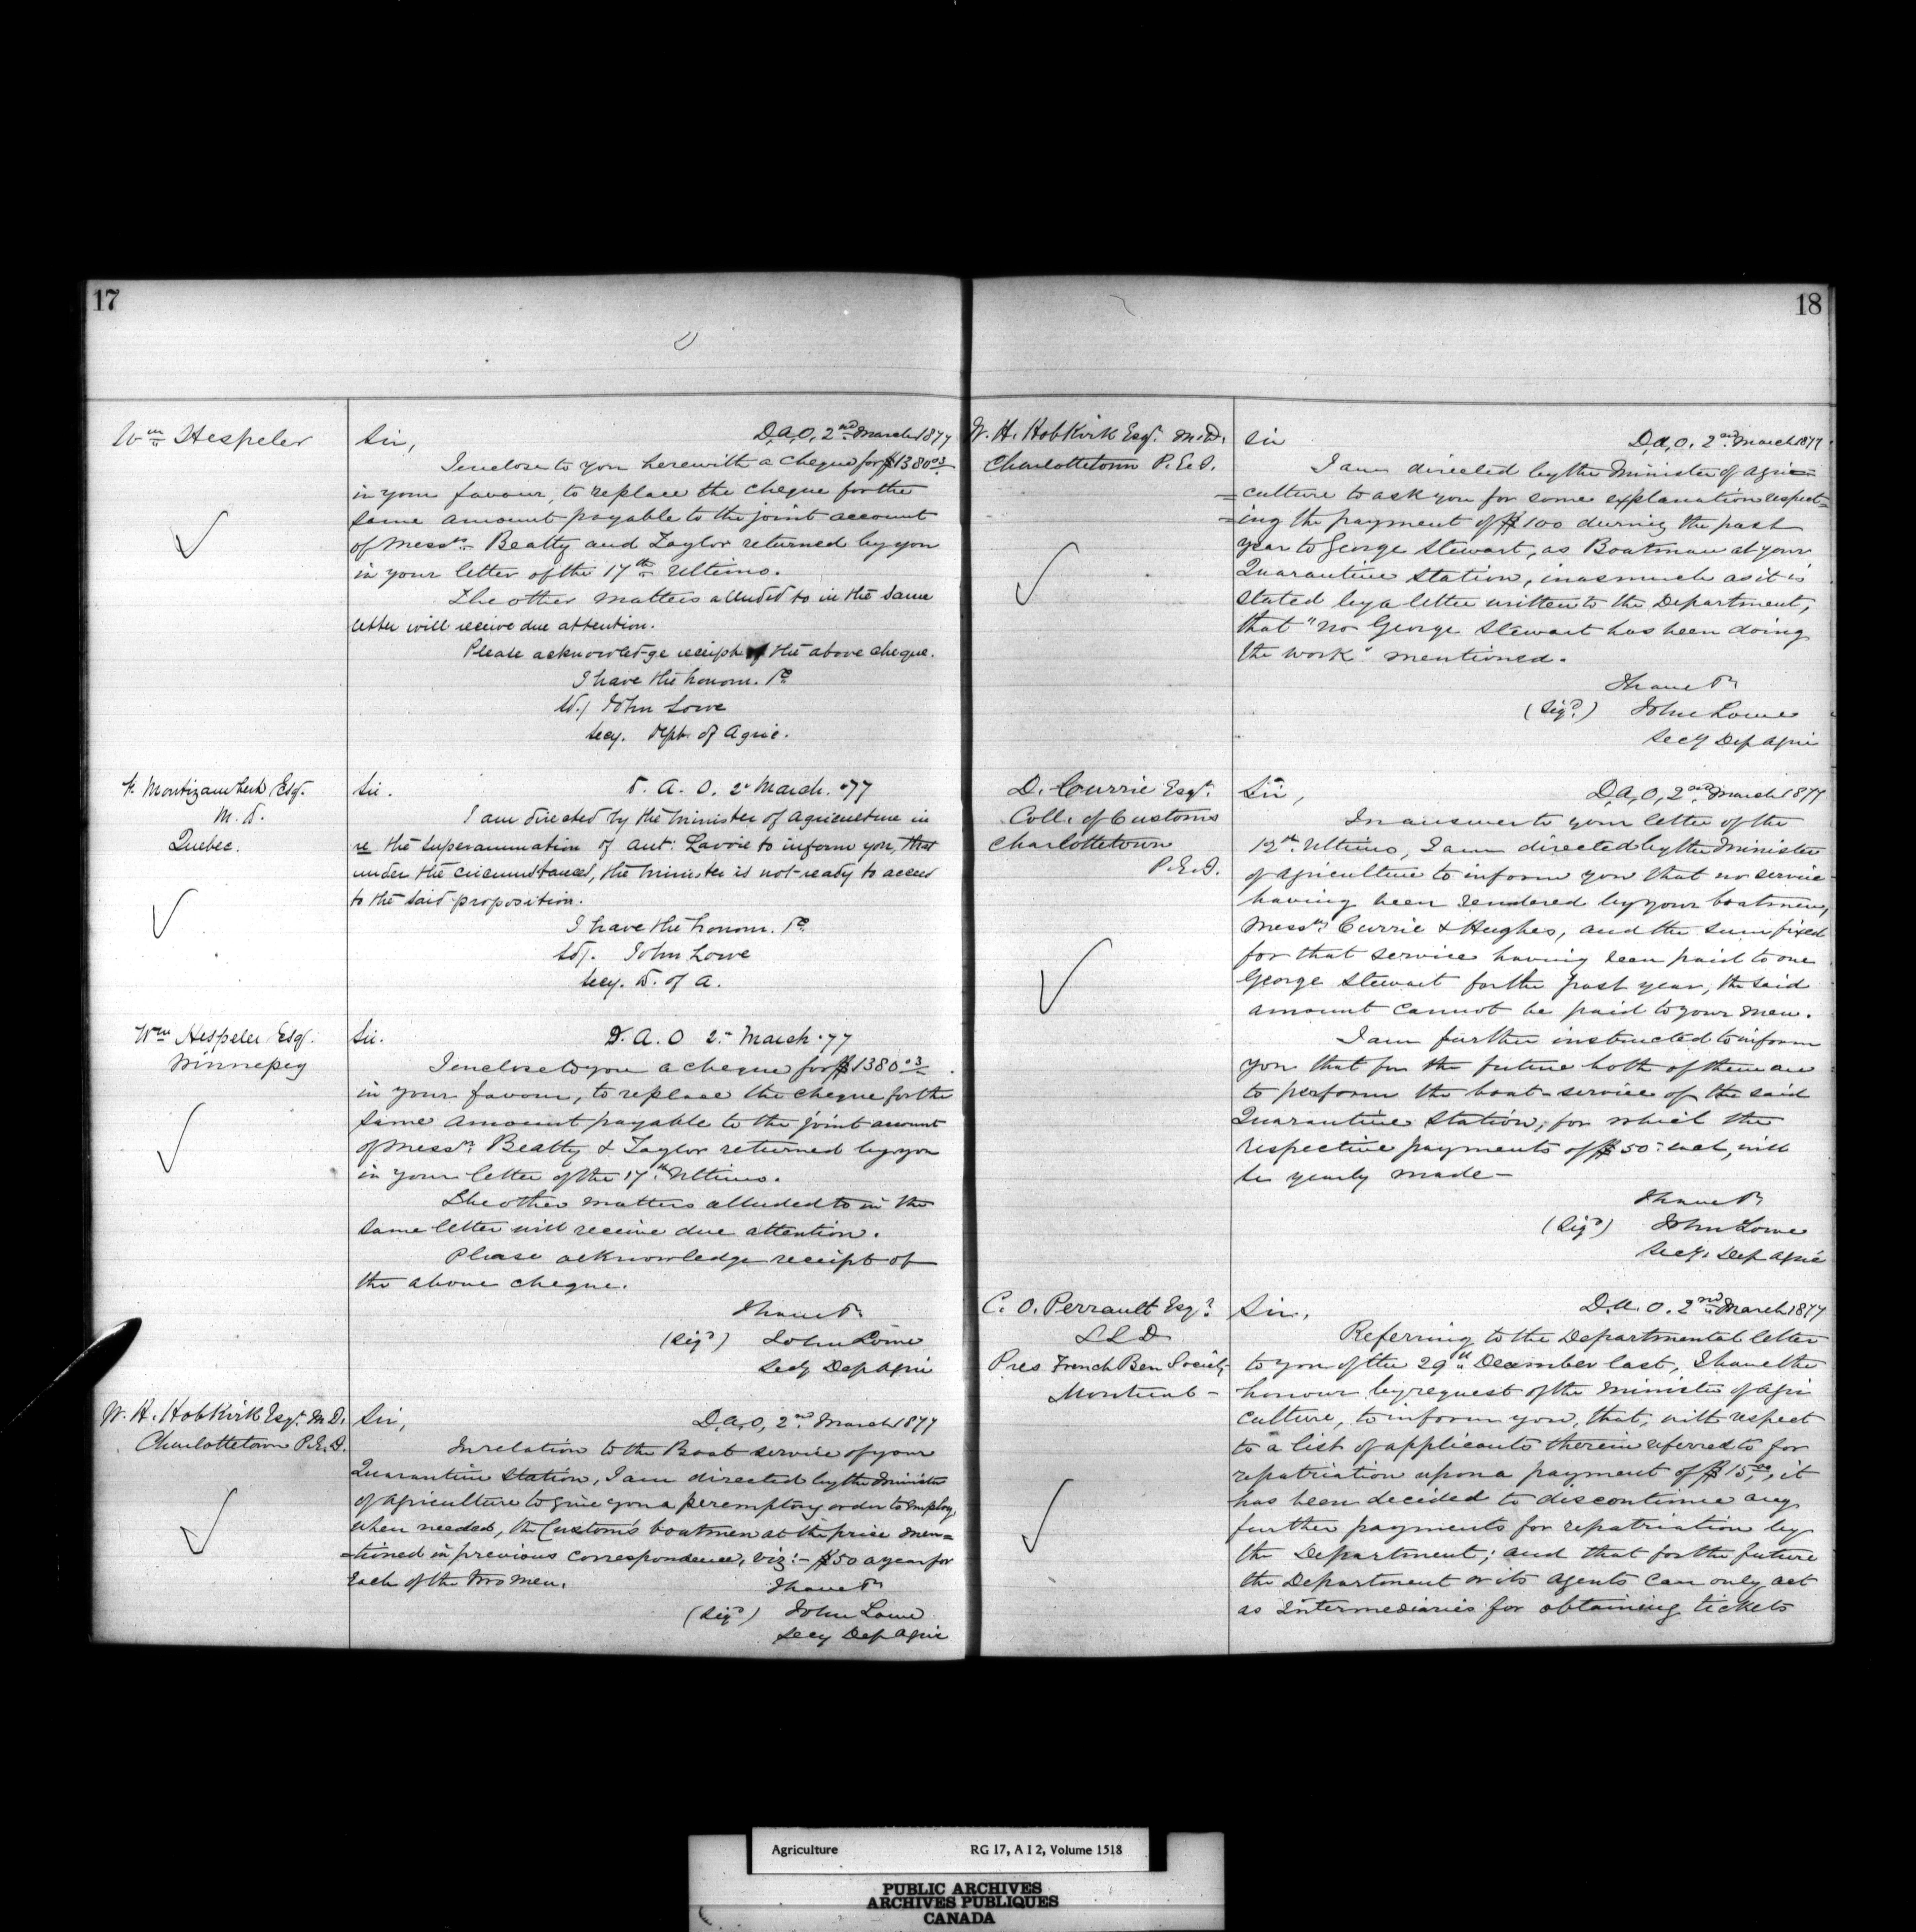 17
Wm Hespeler
Sir,
D.A.O. 2nd March 1877
I enclose to you herewith a cheque for $1380 03
in your favour, to replace the cheque for the
same amount payable to the joint account
of Messrs Beatty and Taylor returned by you
in your letter of the 17th Ultimo.
The other matters alluded to in the same
letter will receive due attention.
Please acknowledge receipt of the above cheque.
I have the honour. &c
Sd/ John Lowe
Secy. Dept. of Agric.
F. Montizambert Esq.
M.D.
Quebec.
Sir.
D. A. O. 2d March. 77
I am directed by the Minister of Agriculture in
re the superannuation of Ant: Lavoie to inform you, that
under the circumstances, the Minister is not ready to accede
to the said proposition.
I have the honour. &c
Sd/. John Lowe
Secy. D. of A.
Wm Hespeler Esq.
Winnepeg
Sir.
D. A. O 2nd March. 77
I enclose to you a cheque for $1380 03
in your favour, to replace the cheque for the
same amount payable to the joint account
of Messrs Beatty & Taylor returned by you
in your letter of the 17th Ultimo.
The other matters alluded to in the
same letter will receive due attention.
Please acknowledge receipt of
the above cheque.
I have &c
(Sigd) John Lowe
Secy Dep Agric
W. H. Hobkirk Esqr. M.D.
Charlottetown P.E.I.
Sir,
D.A.O, 2nd March 1877
In relation to the Boat service of your
Quarantine Station, I am directed by the Minister
of Agriculture to give you a peremptory order to employ,
when needed, the Custom's boatmen at the price men=
=tioned in previous correspondence, viz:- $50 a year for
Each of the two men.
I have &c
(Sigd) John Lowe
Secy Dep Agric
18
W. H. Hobkirk Esqr. M.D.
Charlottetown P.E.I.
Sir
D.A.O. 2nd March 1877
I am directed by the Minister of Agri=
=culture to ask you for some explanation respect=
=ing the payment of $100 during the past
year to George Stewart, as Boatman at your
Quarantine Station, inasmuch as it is
stated by a letter written to the Department,
that "no George Stewart has been doing
the work" mentioned.
I have &c
(Sigd.) John Lowe
Secy Dep Agric
D. Currie Esqr.
Coll. of Customs
Charlottetown
P.E.I.
Sir,
D.A.O, 2nd March 1877
In answer to your letter of the
12th Ultimo, I am directed by the Minister
of Agriculture to inform you that no service
having been rendered by your boatmen,
Messrs Currie & Hughes, and the sum fixed
for that service having been paid to one
George Stewart for the past year, the said
amount cannot be paid to your men.
I am further instructed to inform
you that for the future both of them are
to perform the boat-service of the said
Quarantine Station, for which the
respective payments of $50 each, will
be yearly made -
I have &c
(Sigd) John Lowe
Secy. Dep Agric
C. O. Perrault Esqr
LLD
Pres French Ben Society
Montreal -
Sir,
D.A.O. 2nd March 1877
Referring to the Departmental letter
to you of the 29th December last, I have the
honour by request of the Minister of Agri
culture, to inform you, that, with respect
to a list of applicants therein referred to for
repatriation upon a payment of $15.00, it
has been decided to discontinue any
further payments for repatriation by
the Department; and that for the future
the Department or its agents can only act
as Intermediaries for obtaining tickets
Agriculture RG 17, A I 2, Volume 1518
PUBLIC ARCHIVES
ARCHIVES PUBLIQUES
CANADA